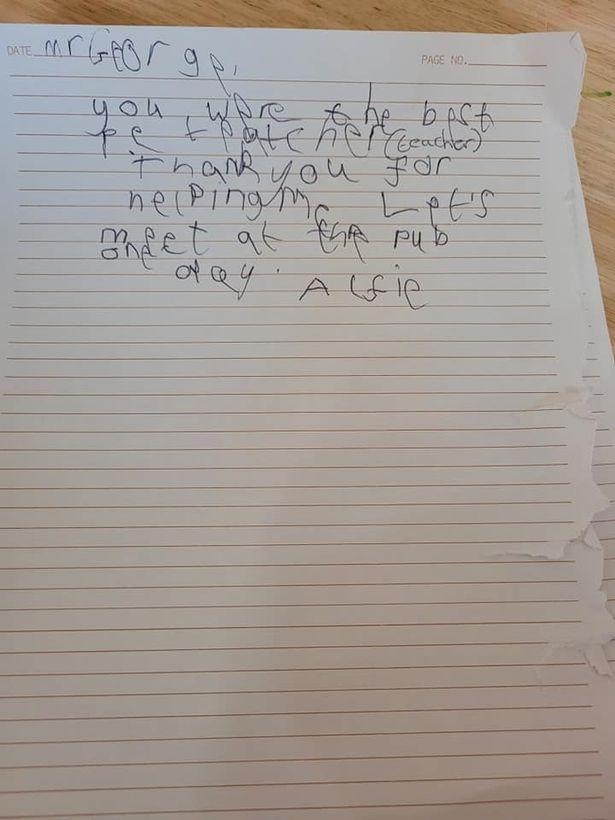 DATE mr George,
PAGE NO.
you were the best
pe teatcher (teacher)
Thankyou for
helpingme Let's
meet at the pub
one
day. Alfie